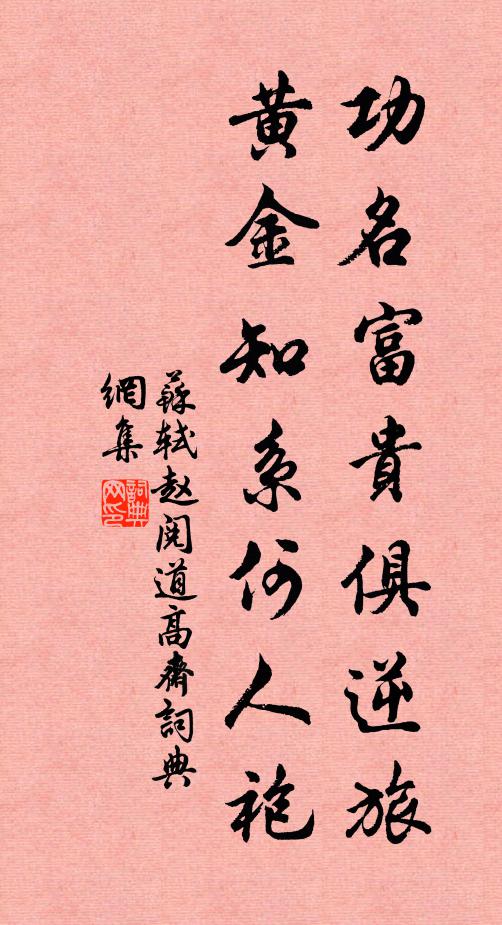 功名富貴俱逆旅
黄金知系何人袍
蘇轼赵阅道高齋詞典
網集
詞典
网印